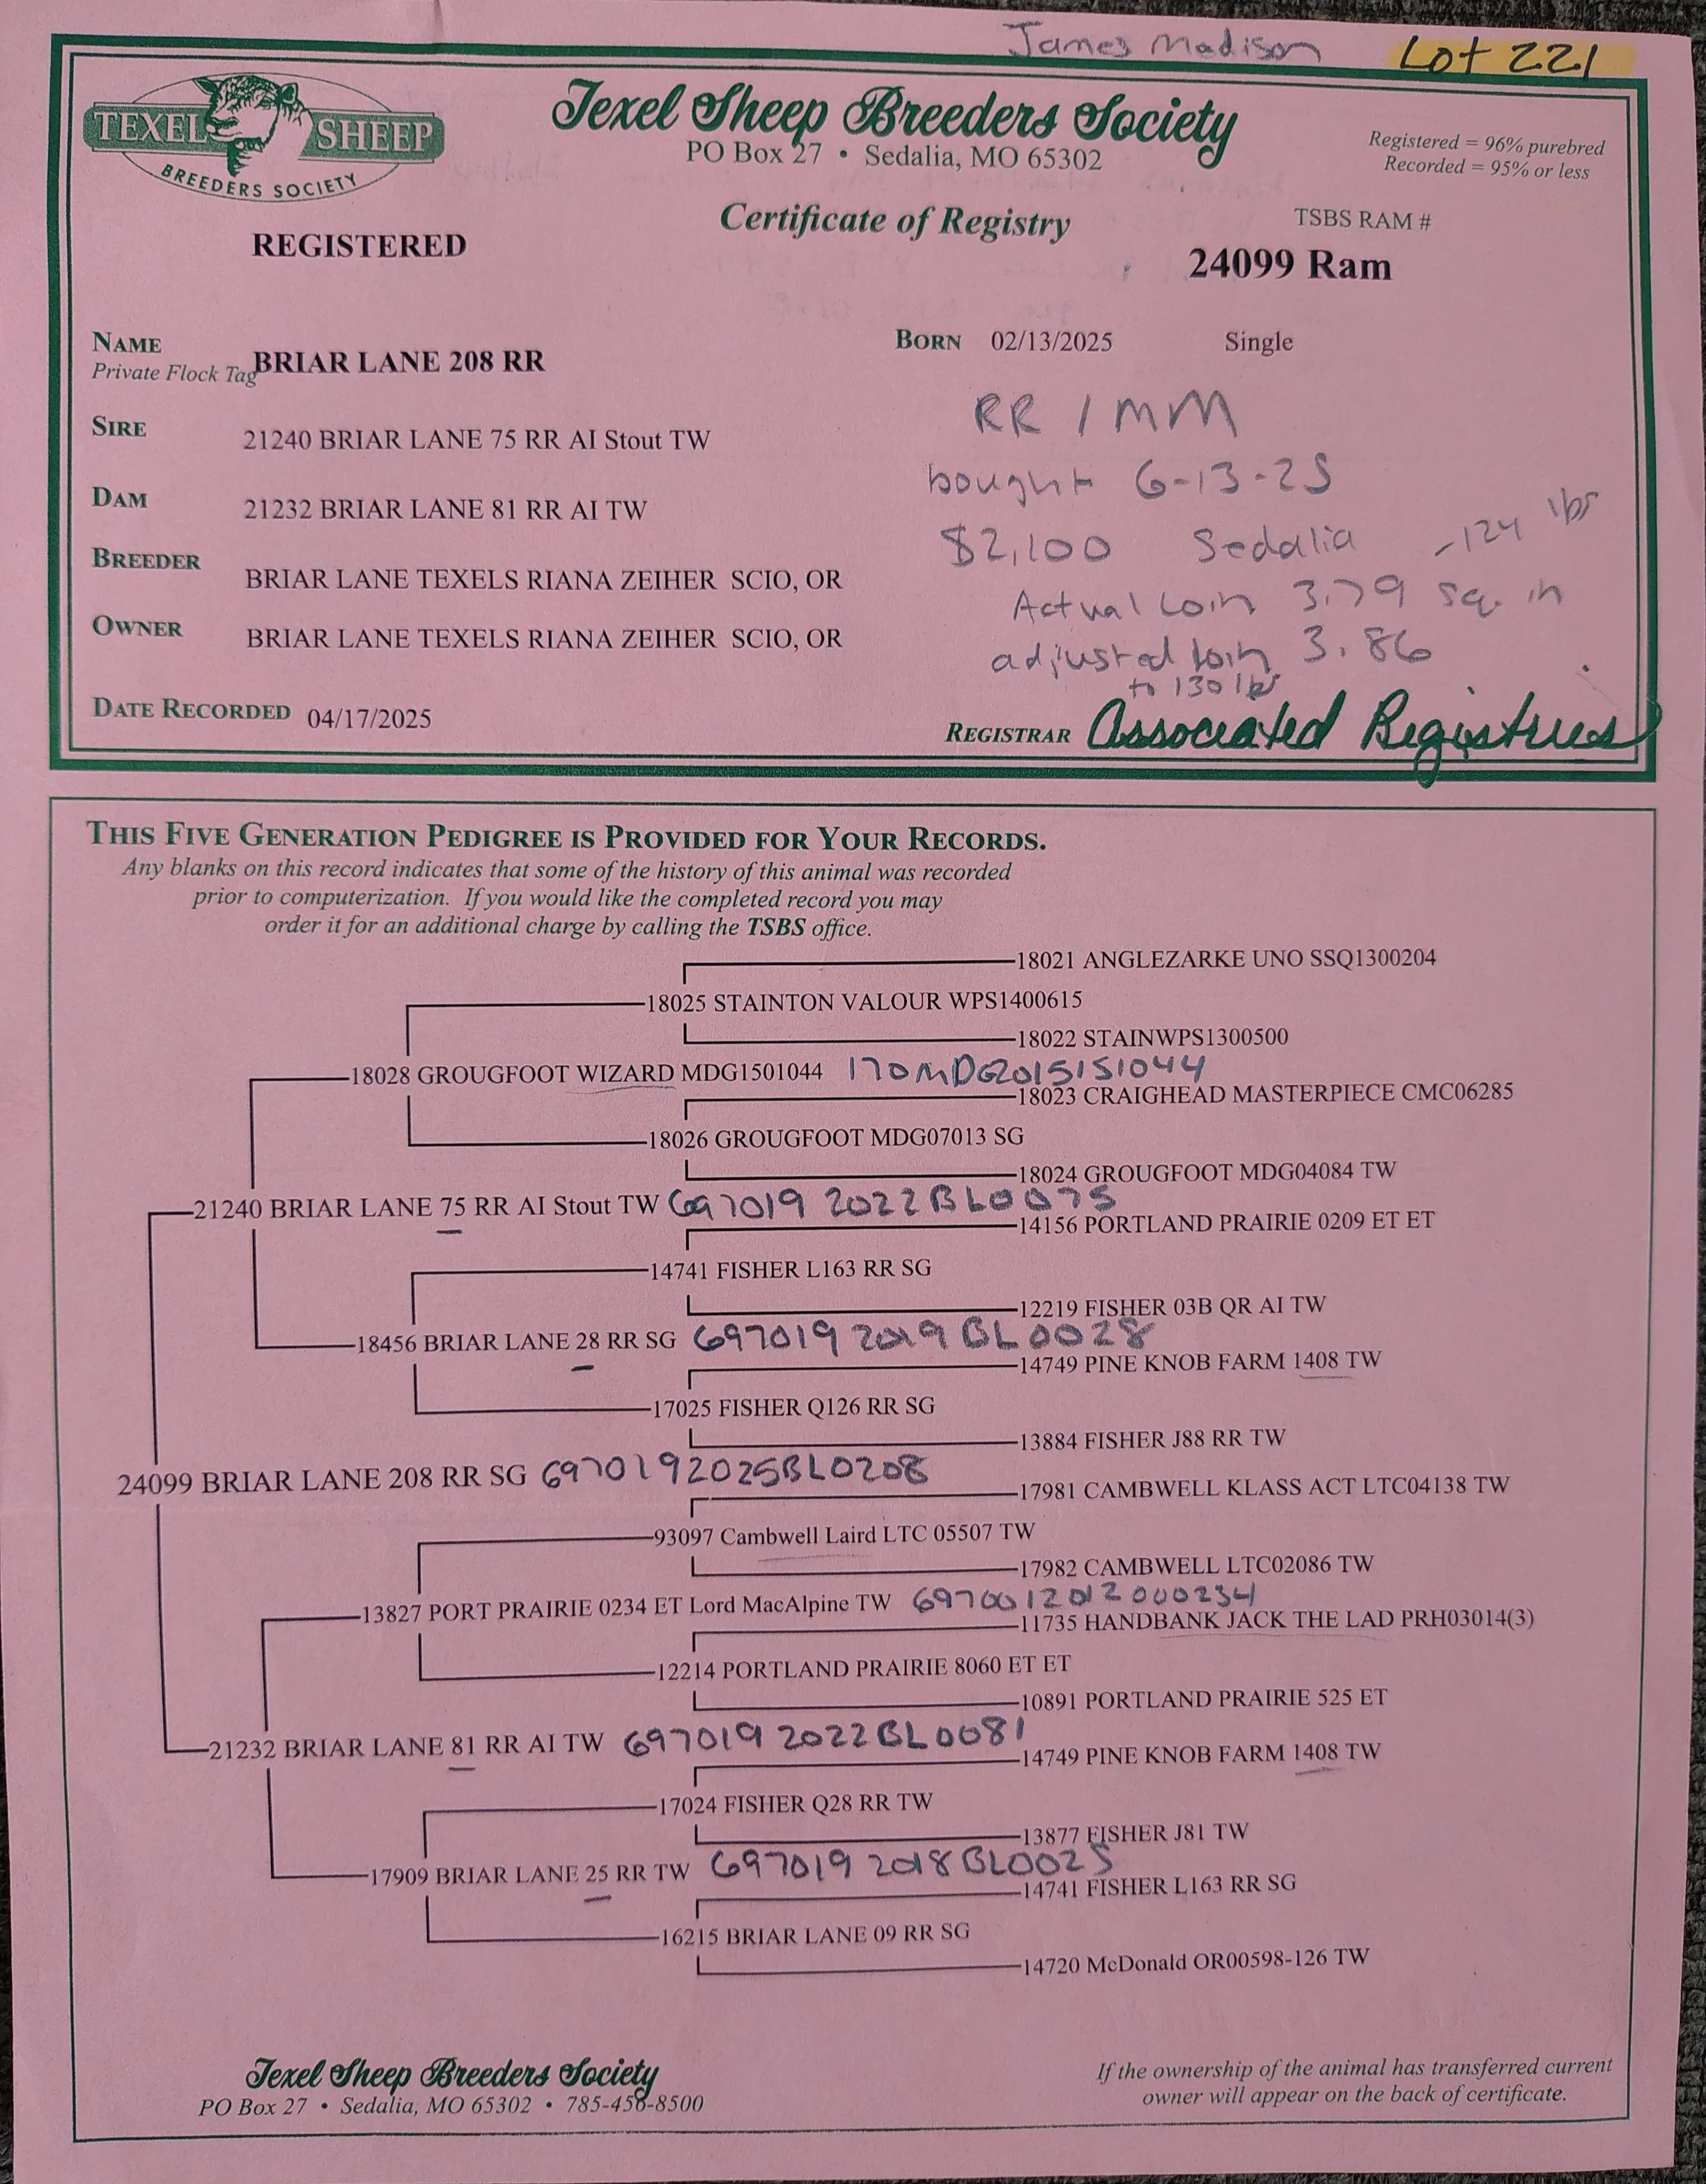 James Madison
Lot 221
TEXEL SHEEP
BREEDERS SOCIETY
Texel Sheep Breeders Society
PO Box 27 • Sedalia, MO 65302
Registered = 96% purebred
Recorded = 95% or less
Certificate of Registry
TSBS RAM #
REGISTERED
24099 Ram
NAME
Private Flock Tag
BRIAR LANE 208 RR
BORN 02/13/2025 Single
SIRE 21240 BRIAR LANE 75 RR AI Stout TW
RR / MM
DAM 21232 BRIAR LANE 81 RR AI TW
bought 6-13-25
$2,100 Sedalia -124 lbs
BREEDER BRIAR LANE TEXELS RIANA ZEIHER SCIO, OR
Actual Loin 3.79 sq. in
OWNER BRIAR LANE TEXELS RIANA ZEIHER SCIO, OR
adjusted loin 3.86
to 130 lbs
DATE RECORDED 04/17/2025
REGISTRAR Associated Registries
THIS FIVE GENERATION PEDIGREE IS PROVIDED FOR YOUR RECORDS.
Any blanks on this record indicates that some of the history of this animal was recorded
prior to computerization. If you would like the completed record you may
order it for an additional charge by calling the TSBS office.
18021 ANGLEZARKE UNO SSQ1300204
18025 STAINTON VALOUR WPS1400615
18022 STAINWPS1300500
18028 GROUGFOOT WIZARD MDG1501044 170MDG2015151044
18023 CRAIGHEAD MASTERPIECE CMC06285
18026 GROUGFOOT MDG07013 SG
18024 GROUGFOOT MDG04084 TW
21240 BRIAR LANE 75 RR AI Stout TW 697019 2022BL0075
14156 PORTLAND PRAIRIE 0209 ET ET
14741 FISHER L163 RR SG
12219 FISHER 03B QR AI TW
18456 BRIAR LANE 28 RR SG 697019 2019BL0028
14749 PINE KNOB FARM 1408 TW
17025 FISHER Q126 RR SG
13884 FISHER J88 RR TW
24099 BRIAR LANE 208 RR SG 6970192025BL0208
17981 CAMBWELL KLASS ACT LTC04138 TW
93097 Cambwell Laird LTC 05507 TW
17982 CAMBWELL LTC02086 TW
13827 PORT PRAIRIE 0234 ET Lord MacAlpine TW 6970012012000234
11735 HANDBANK JACK THE LAD PRH03014(3)
12214 PORTLAND PRAIRIE 8060 ET ET
10891 PORTLAND PRAIRIE 525 ET
21232 BRIAR LANE 81 RR AI TW 697019 2022BL0081
14749 PINE KNOB FARM 1408 TW
17024 FISHER Q28 RR TW
13877 FISHER J81 TW
17909 BRIAR LANE 25 RR TW 697019 2018BL0025
14741 FISHER L163 RR SG
16215 BRIAR LANE 09 RR SG
14720 McDonald OR00598-126 TW
Texel Sheep Breeders Society
PO Box 27 • Sedalia, MO 65302 • 785-456-8500
If the ownership of the animal has transferred current
owner will appear on the back of certificate.